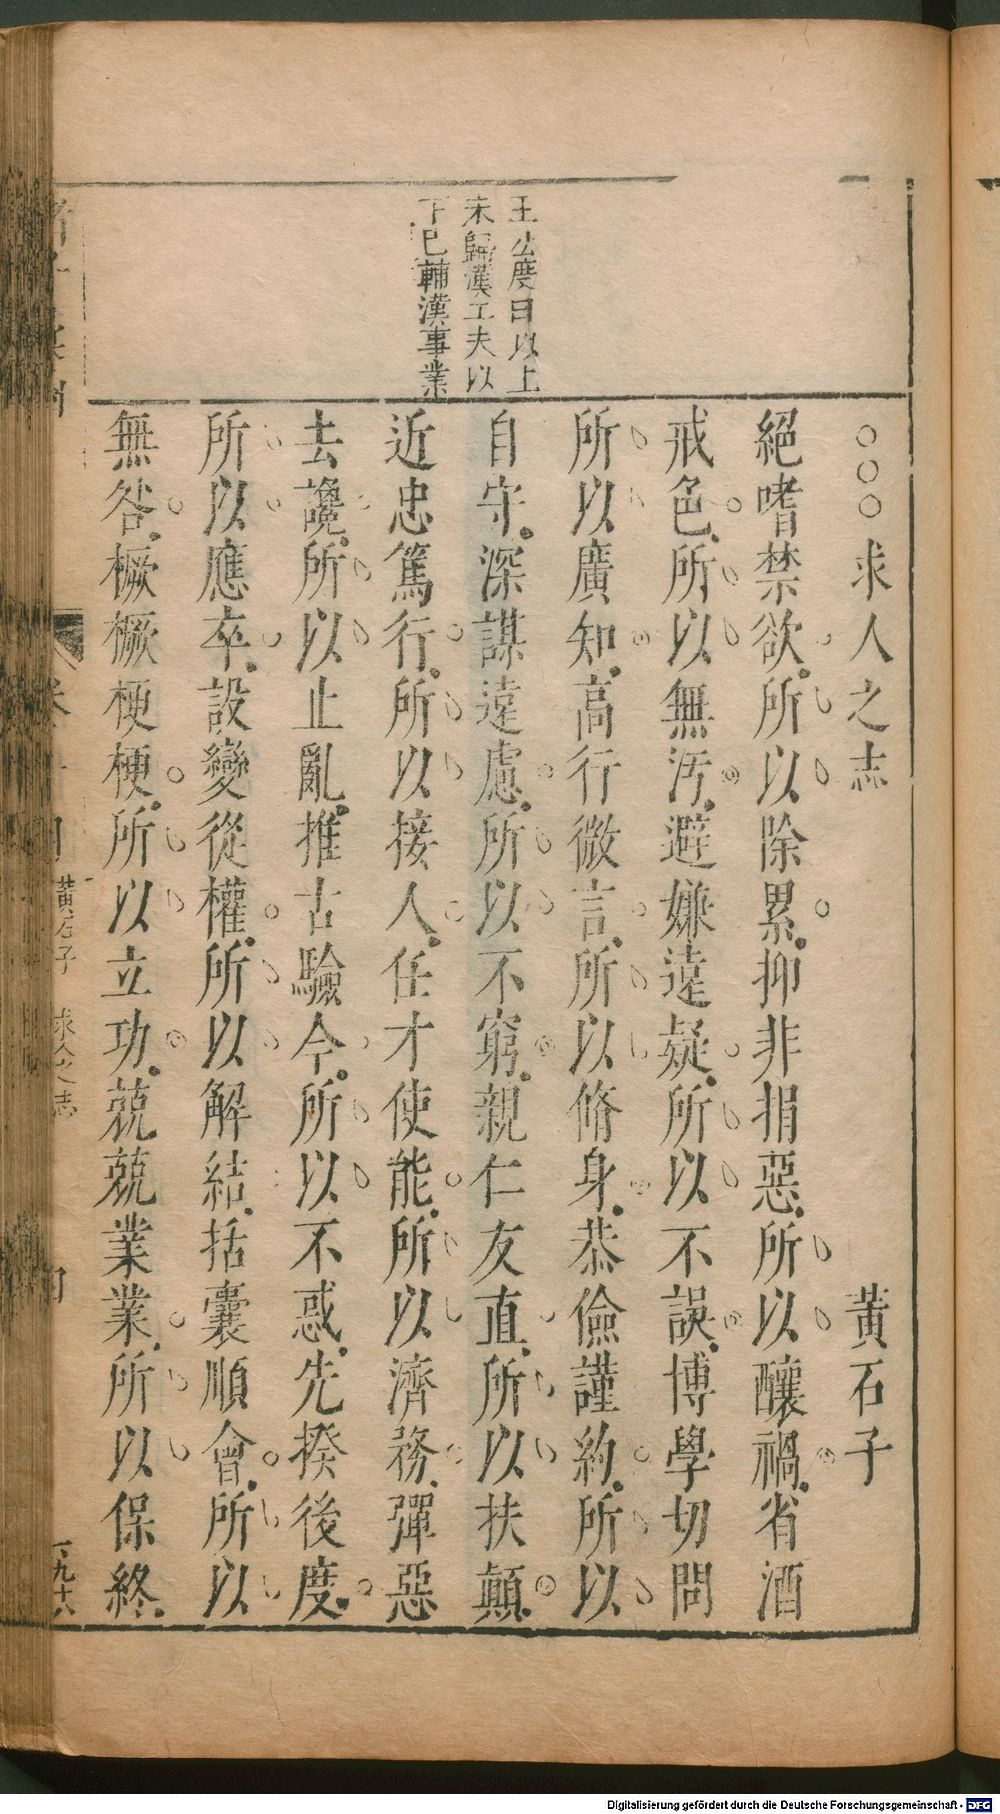 王公度曰以上
未歸漢工夫以
下已輔漢事業
○○○求人之志 黃石子
絕嗜禁欲所以除累抑非捐惡所以釀禍省酒
戒色所以無汚避嫌遠疑所以不誤博學切問
所以廣知高行微言所以脩身恭儉謹約所以
自守深謀遠慮所以不窮親仁友直所以扶顛
近忠篤行所以接人任才使能所以濟務彈惡
去讒所以止亂推古驗今所以不惑先揆後度
所以應卒設變從權所以解結括囊順會所以
無咎橛橛梗梗所以立功兢兢業業所以保終
黃石子 求人之志
九十六
Digitalisierung gefördert durch die Deutsche Forschungsgemeinschaft - DFG